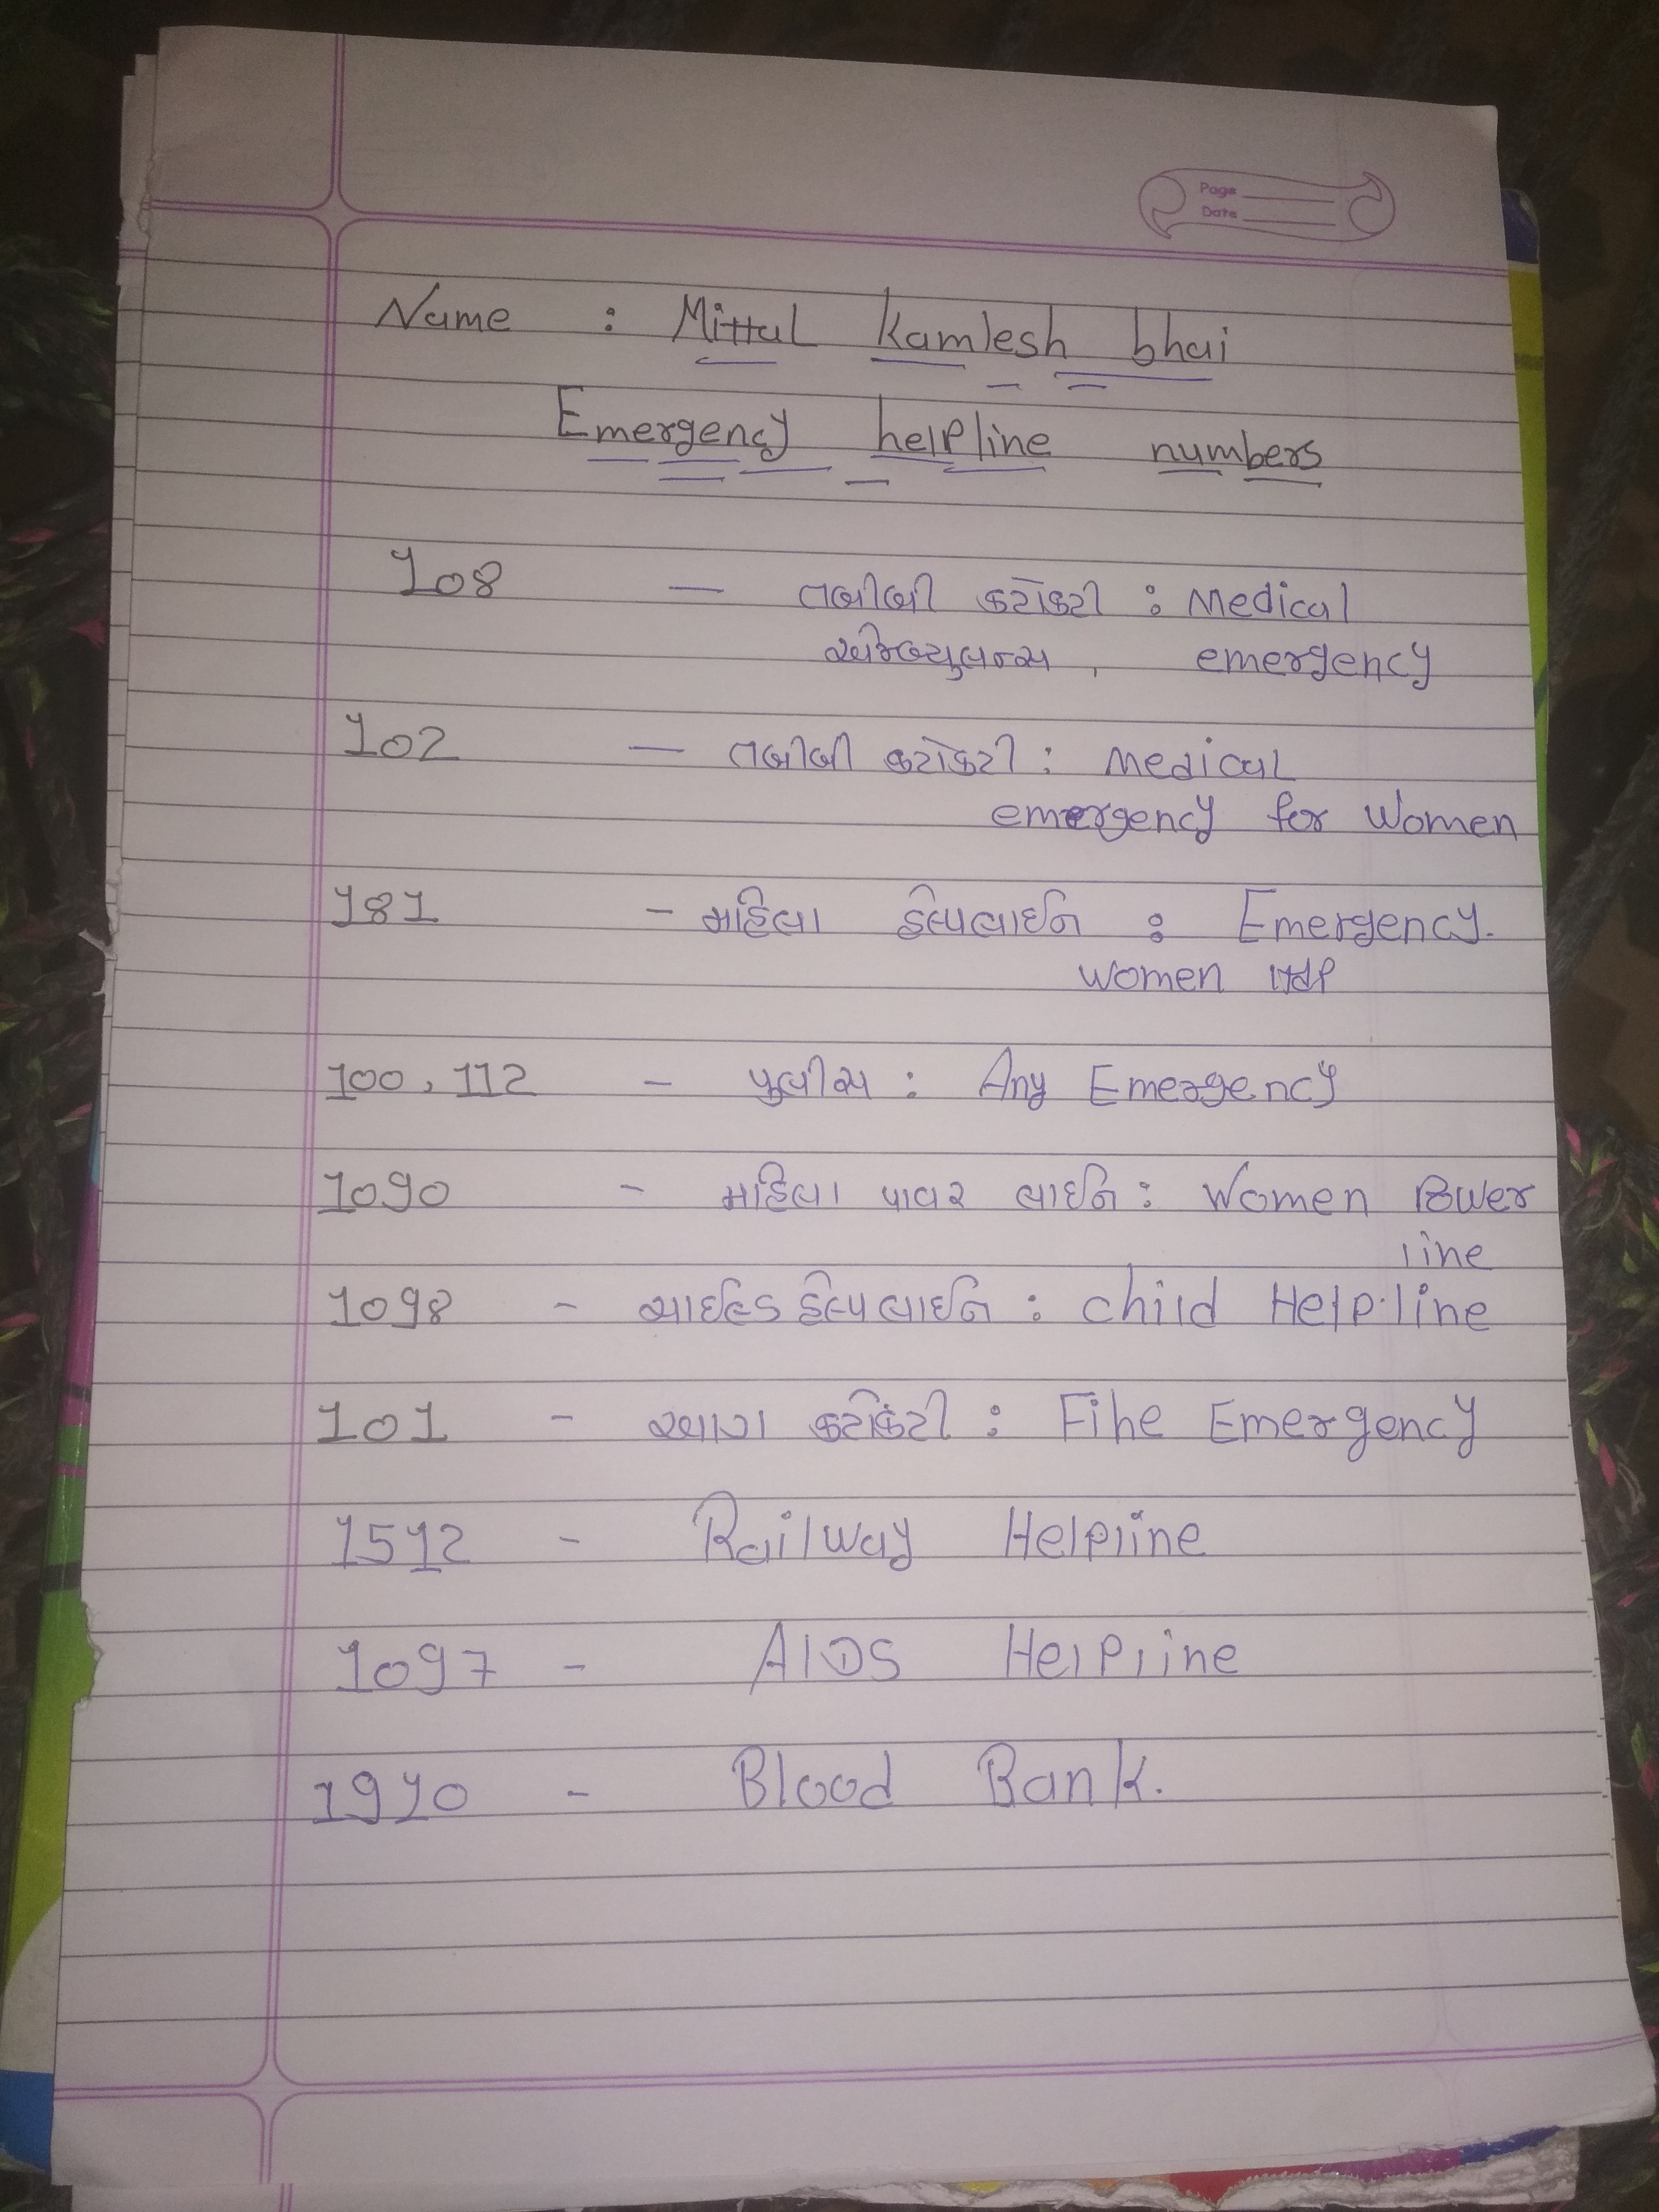 Page
Date
Name : Mittal Kamlesh bhai
Emergency helpline numbers
108 — તબીબી કટોકટી : Medical
એમ્બ્યુલન્સ, emergency
102 — તબીબી કટોકટી : Medical
emergency for Women
181 - મહિલા હેલ્પલાઈન : Emergency.
women
100, 112 - પુલીસ : Any Emergency
1090 - મહિલા પાવર લાઈન : Women Power
line
1098 - ચાઈલ્ડ હેલ્પલાઈન : child Help.line
101 - આગ કટોકટી : Fihe Emergency
1512 - Railway Helpline
1097 - AIDS Helpline
1910 - Blood Bank.